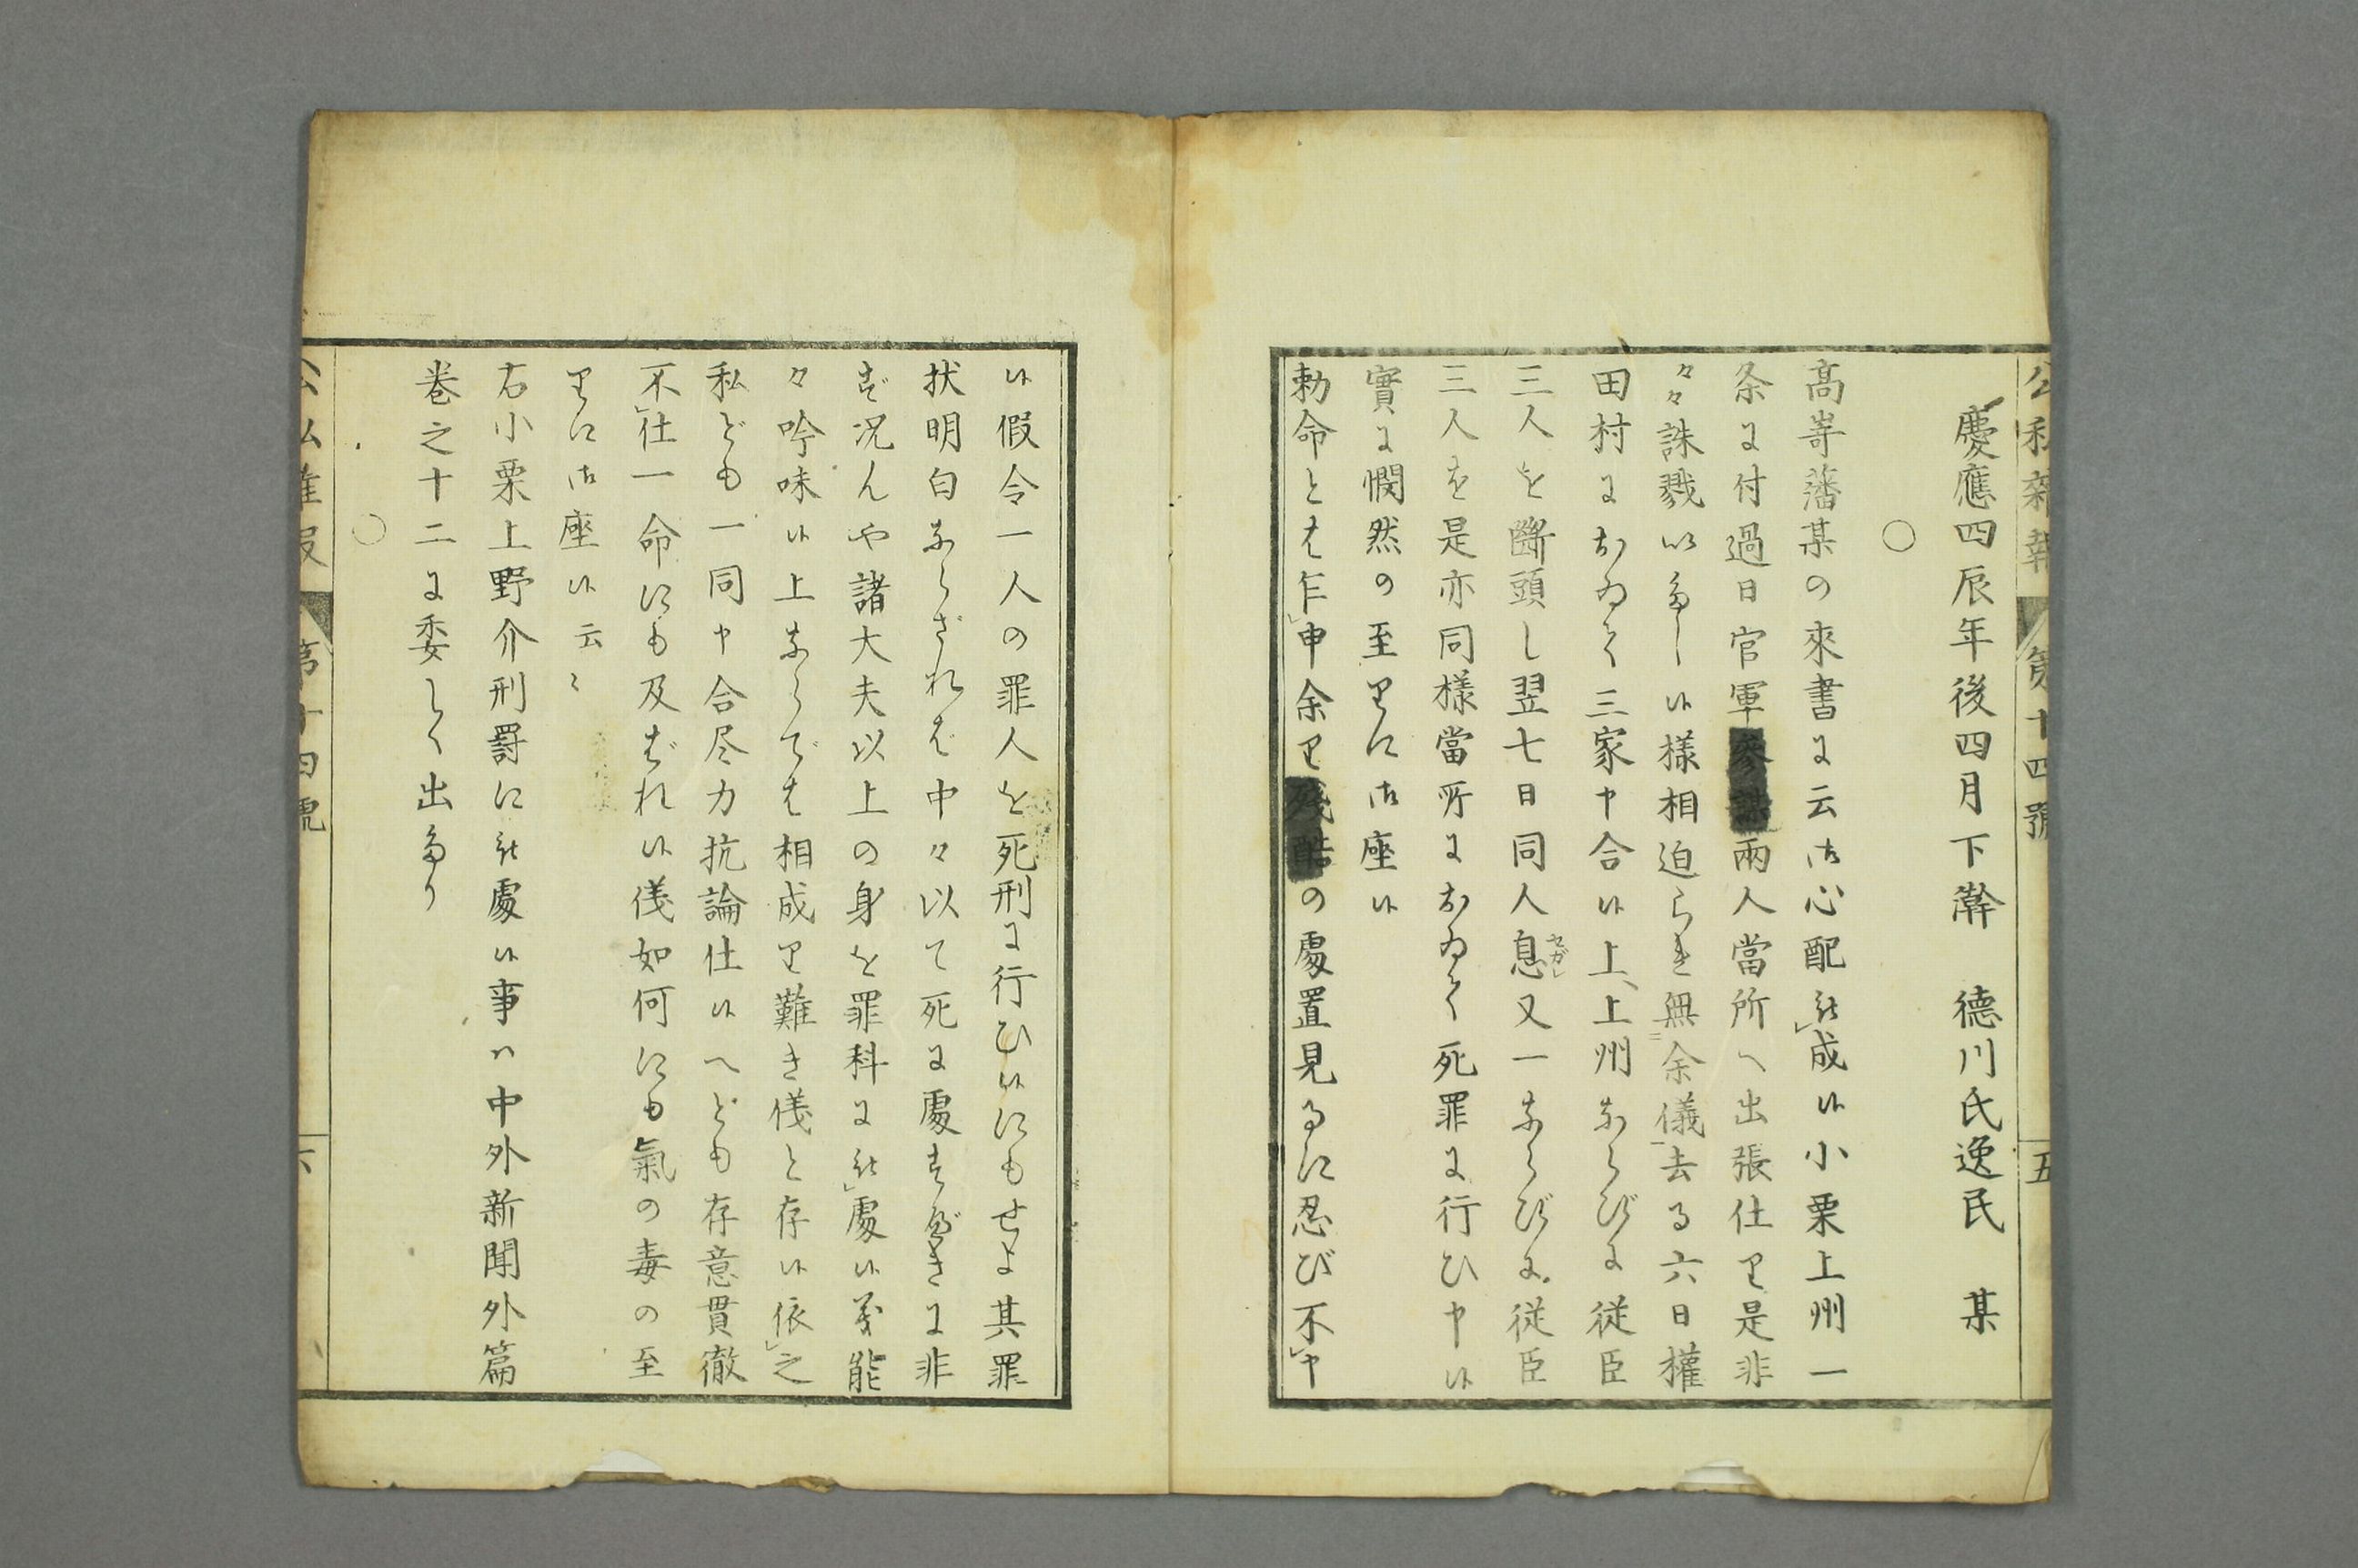 公私雜報 第十四號 五
慶應四辰年後四月下澣 德川氏逸民 某
〇
高嵜藩某の來書に云御心配被成候小栗上州一
条に付過日官軍參謀兩人當所へ出張仕り是非
々々誅戮いたし候様相迫られ無余儀去る六日權
田村におゐて三家申合候上、上州ならびに従臣
三人を斷頭し翌七日同人息セガレ又一ならびに従臣
三人を是亦同様當所におゐて死罪に行ひ申候
實に憫然の至りに御座候
勅命とは乍申余り残酷の處置見るに忍び不申
候假令一人の罪人を死刑に行ひ候にもせよ其罪
状明白ならざれば中々以て死に處すべきに非
ず况んや諸大夫以上の身を罪科に被處候義能
々吟味候上ならでは相成り難き儀と存候依之
私ども一同申合尽力抗論仕候へども存意貫徹
不仕一命にも及ばれ候儀如何にも氣の毒の至
りに御座候云々
右小栗上野介刑罰に被處候事ハ中外新聞外篇
卷之十二に委しく出たり
〇
公私雜報 第十四號 六